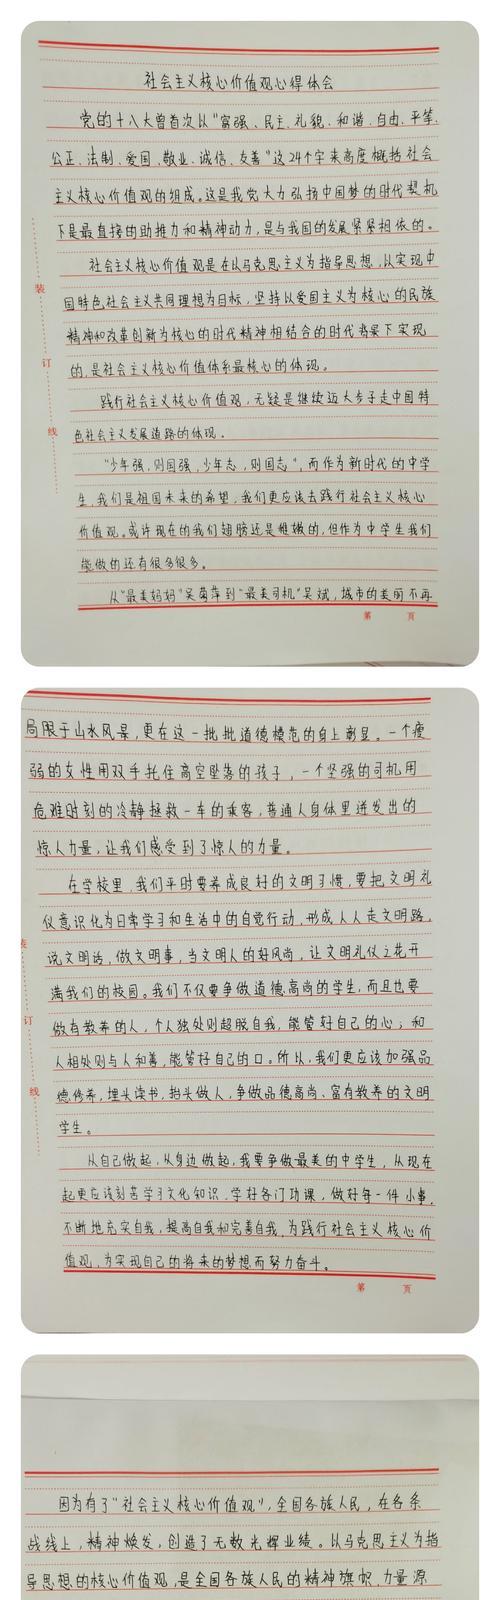 社会主义核心价值观心得体会
党的十八大曾首次以“富强、民主、礼貌、和谐、自由、平等、
公正、法制、爱国、敬业、诚信、友善”这24个字来高度概括社会
主义核心价值观的组成。这是我党大力弘扬中国梦的时代契机
下是最直接的助推力和精神动力，是与我国的发展紧紧相依的。
社会主义核心价值观是在以马克思主义为指导思想，以实现中
国特色社会主义共同理想为目标，坚持以爱国主义为核心的民族
精神和改革创新为核心的时代精神相结合的时代背景下实现
的，是社会主义核心价值体系最核心的体现。
践行社会主义核心价值观，无疑是继续迈大步子走中国特
色社会主义发展道路的体现。
“少年强，则国强，少年志，则国志”，而作为新时代的中学
生，我们是祖国未来的希望，我们更应该去践行社会主义核心
价值观。或许现在的我们翅膀还是稚嫩的，但作为中学生我们
能做的还有很多很多。
从“最美妈妈”吴菊萍到“最美司机”吴斌，城市的美丽不再
装
订
线
第 页
局限于山水风景，更在这一批批道德模范的身上彰显。一个瘦
弱的女性用双手托住高空坠落的孩子，一个坚强的司机用
危难时刻的冷静拯救一车的乘客，普通人身体里迸发出的
惊人力量，让我们感受到了惊人的力量。
在学校里，我们平时要养成良好的文明习惯，要把文明礼
仪意识化为日常学习和生活中的自觉行动，形成人人走文明路，
说文明话，做文明事，当文明人的好风尚，让文明礼仪之花开
满我们的校园。我们不仅要争做道德高尚的学生，而且也要
做有教养的人，个人独处则超脱自我，能管好自己的心；和
人相处则与人和善，能管好自己的口。所以，我们更应该加强品
德修养，埋头读书，抬头做人，争做品德高尚、富有教养的文明
学生。
从自己做起，从身边做起，我要争做最美的中学生，从现在
起更应该刻苦学习文化知识，学好各门功课，做好每一件小事，
不断地充实自我，提高自我和完善自我，为践行社会主义核心价
值观，为实现自己的将来的梦想而努力奋斗。
装
订
线
第 页
因为有了“社会主义核心价值观”，全国各族人民，在各条
战线上，精神焕发，创造了无数光辉业绩。以马克思主义为指
导思想的核心价值观，是全国各族人民的精神旗帜，力量源